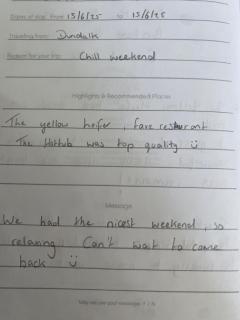 Dates of stay: From 13/6/25 to 15/6/25
Traveling from: Dundalk
Reason for your trip: Chill weekend
Highlights & Recommended Places
The yellow heifer, fave restaurant
The Hottub was top quality
Message
We had the nicest weekend, so
relaxing Can't wait to come
back
May we use your message? Y / N